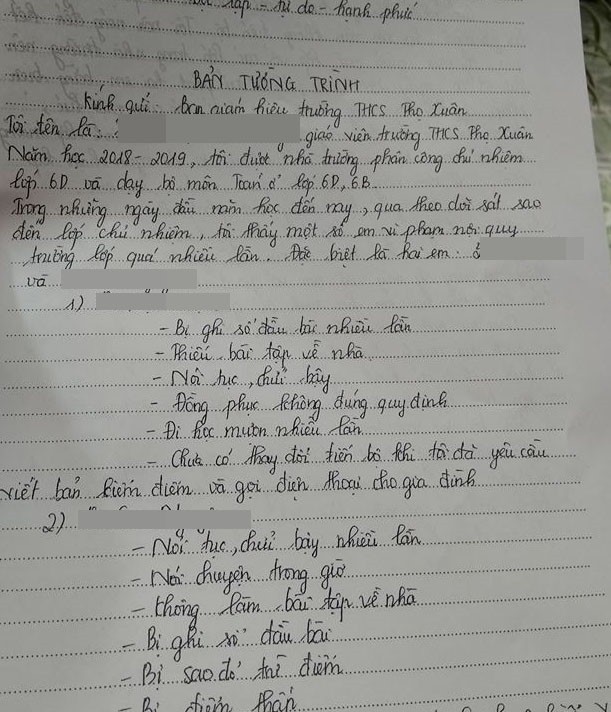 lập - tự do - hạnh phúc
BẢN TƯỜNG TRÌNH
Kính gửi: Ban giám hiệu trường THCS Thọ Xuân
Tôi tên là: giáo viên trường THCS Thọ Xuân
Năm học 2018 - 2019, tôi được nhà trường phân công chủ nhiệm
lớp 6D và dạy bộ môn Toán ở lớp 6D, 6B
Trong những ngày đầu năm học đến nay, qua theo dõi sát sao
đến lớp chủ nhiệm, tôi thấy một số em vi phạm nội quy
trường lớp quá nhiều lần. Đặc biệt là hai em:
và
1)
- Bị ghi sổ đầu bài nhiều lần
- Thiếu bài tập về nhà
- Nói tục, chửi bậy
- Đồng phục không đúng quy định
- Đi học muộn nhiều lần
- Chưa có thay đổi tiến bộ khi tôi đã yêu cầu
viết bản kiểm điểm và gọi điện thoại cho gia đình
2)
- Nói tục, chửi bậy nhiều lần
- Nói chuyện trong giờ
- Không làm bài tập về nhà
- Bị ghi sổ đầu bài
- Bị sao đỏ trừ điểm
- Bị điểm thấp